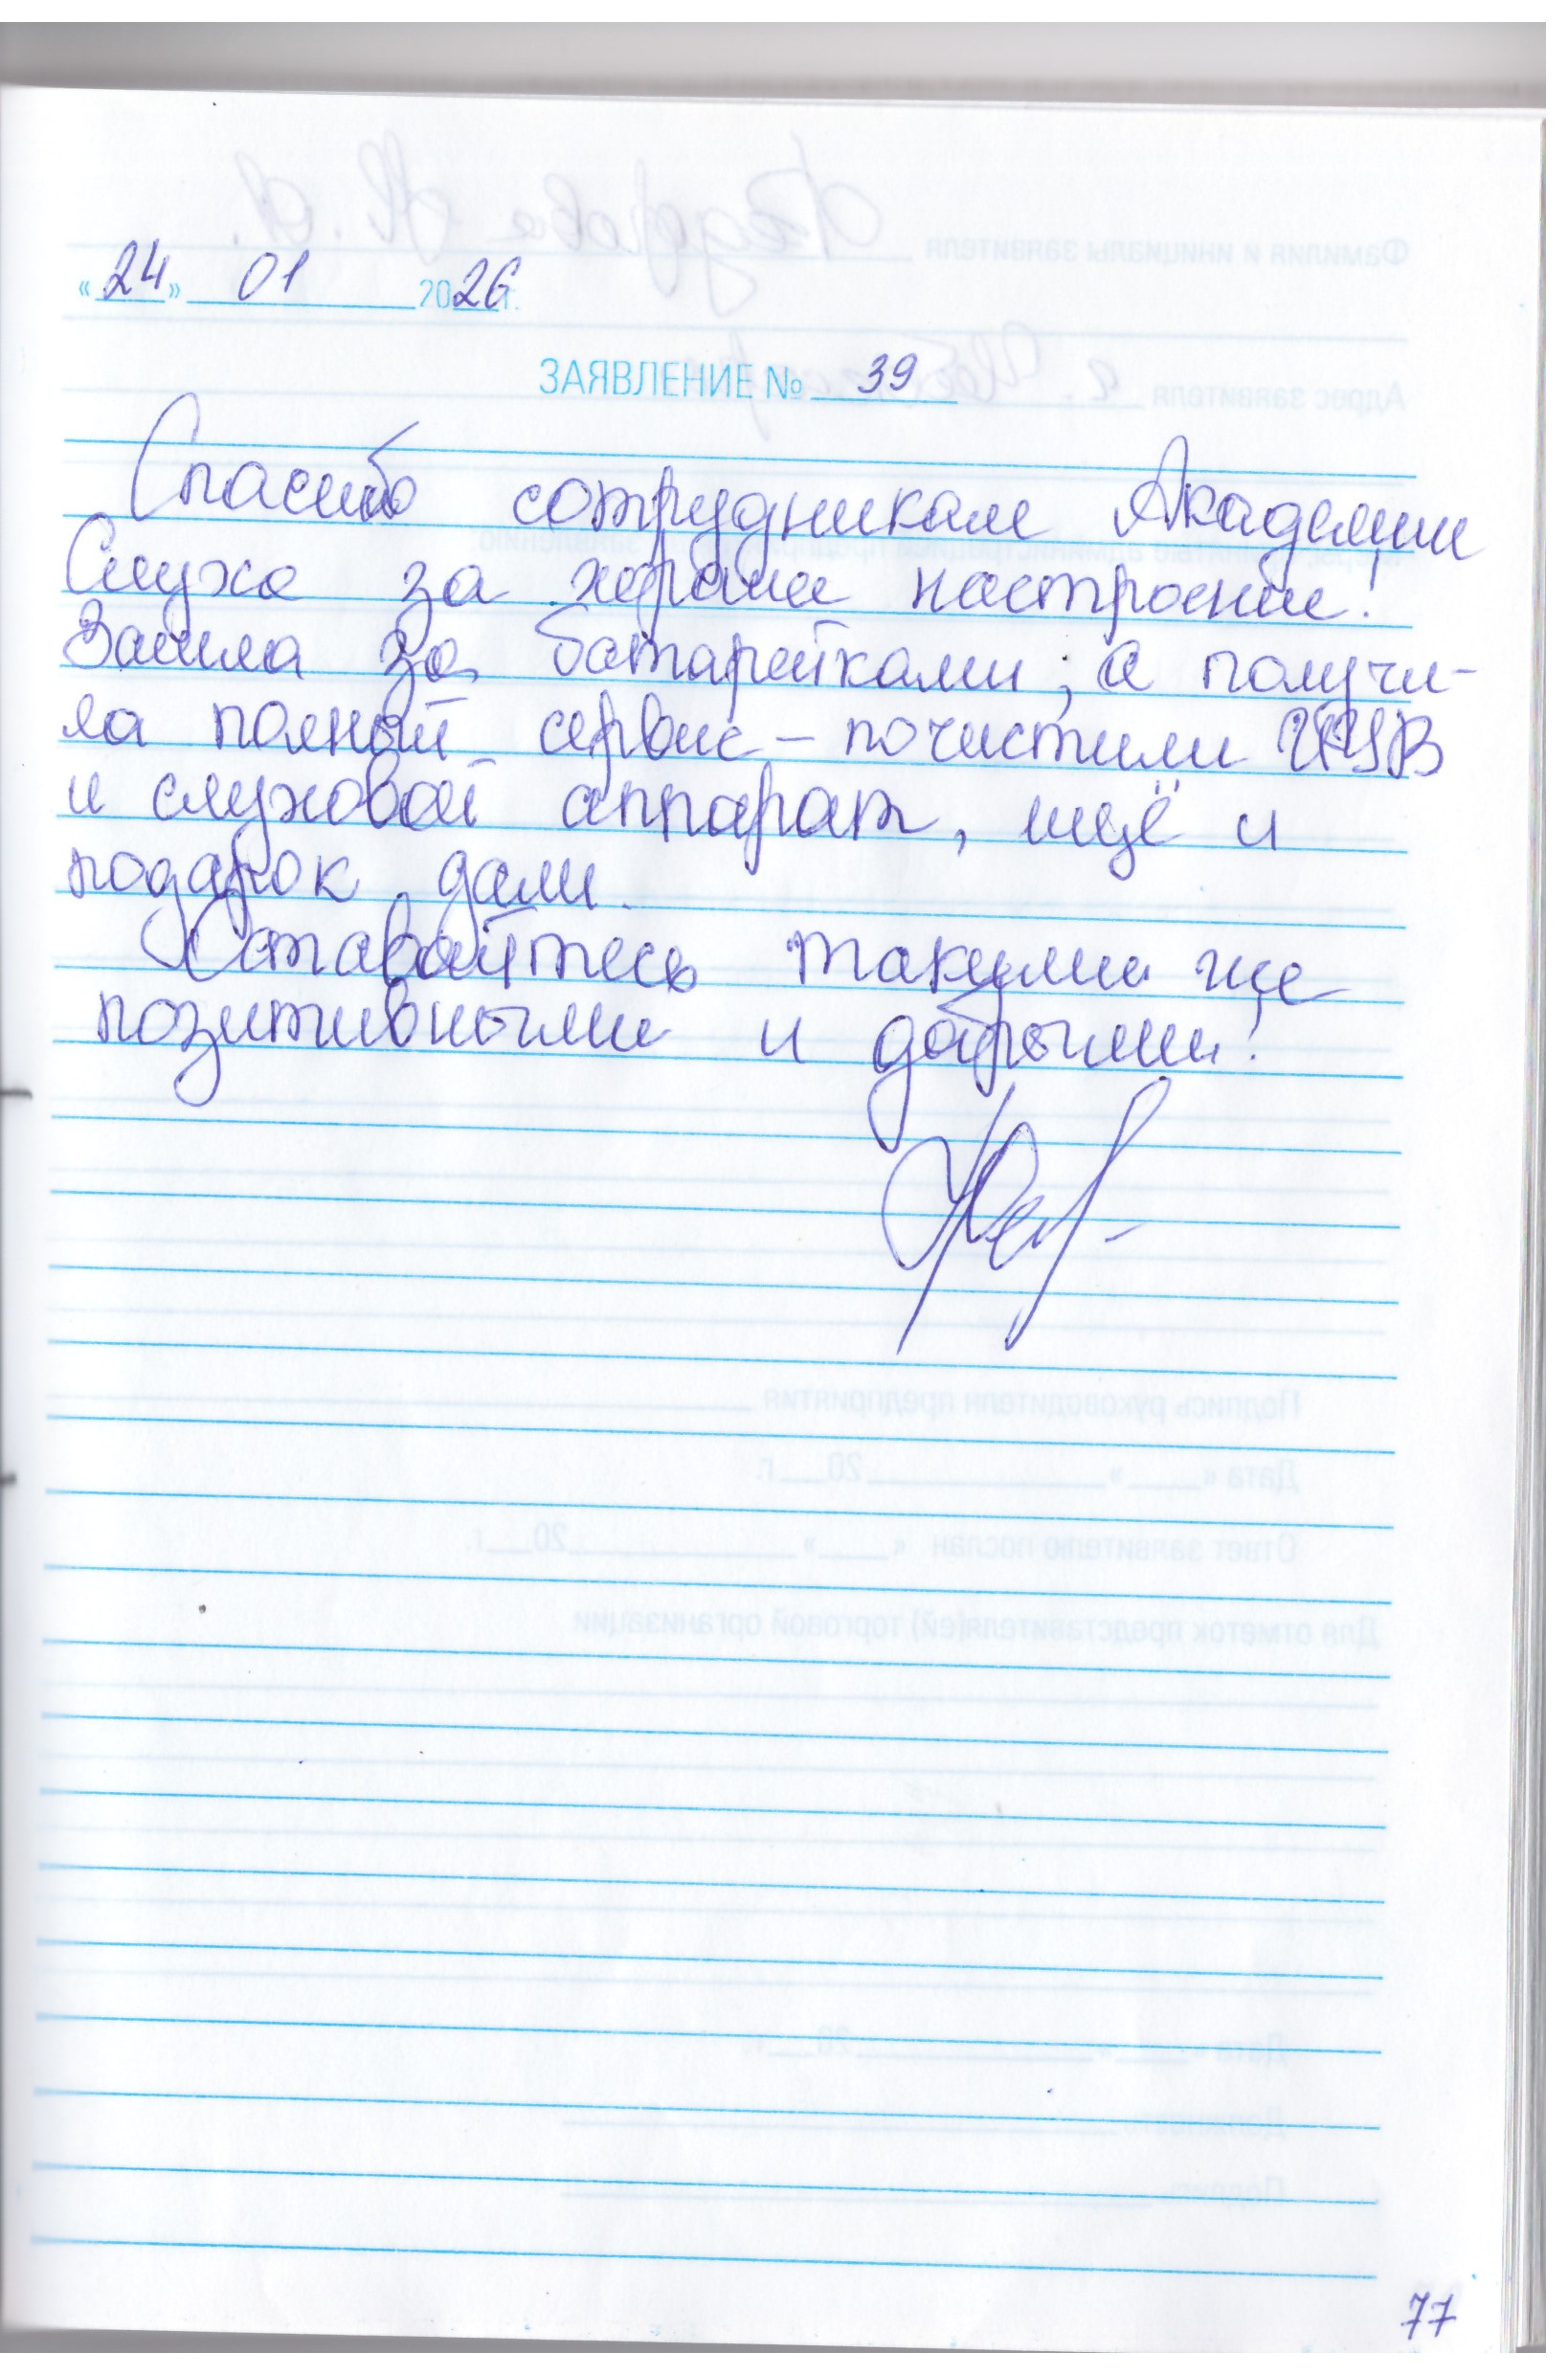 «24» 01 2026 г.
ЗАЯВЛЕНИЕ № 39
Спасибо сотрудникам Академии
Слуха за хорошее настроение!
Зашла за батарейками, а получи-
ла полный сервис – почистили ИУВ
и слуховой аппарат, ещё и
подарок дали.
Оставайтесь такими же
позитивными и добрыми!
77